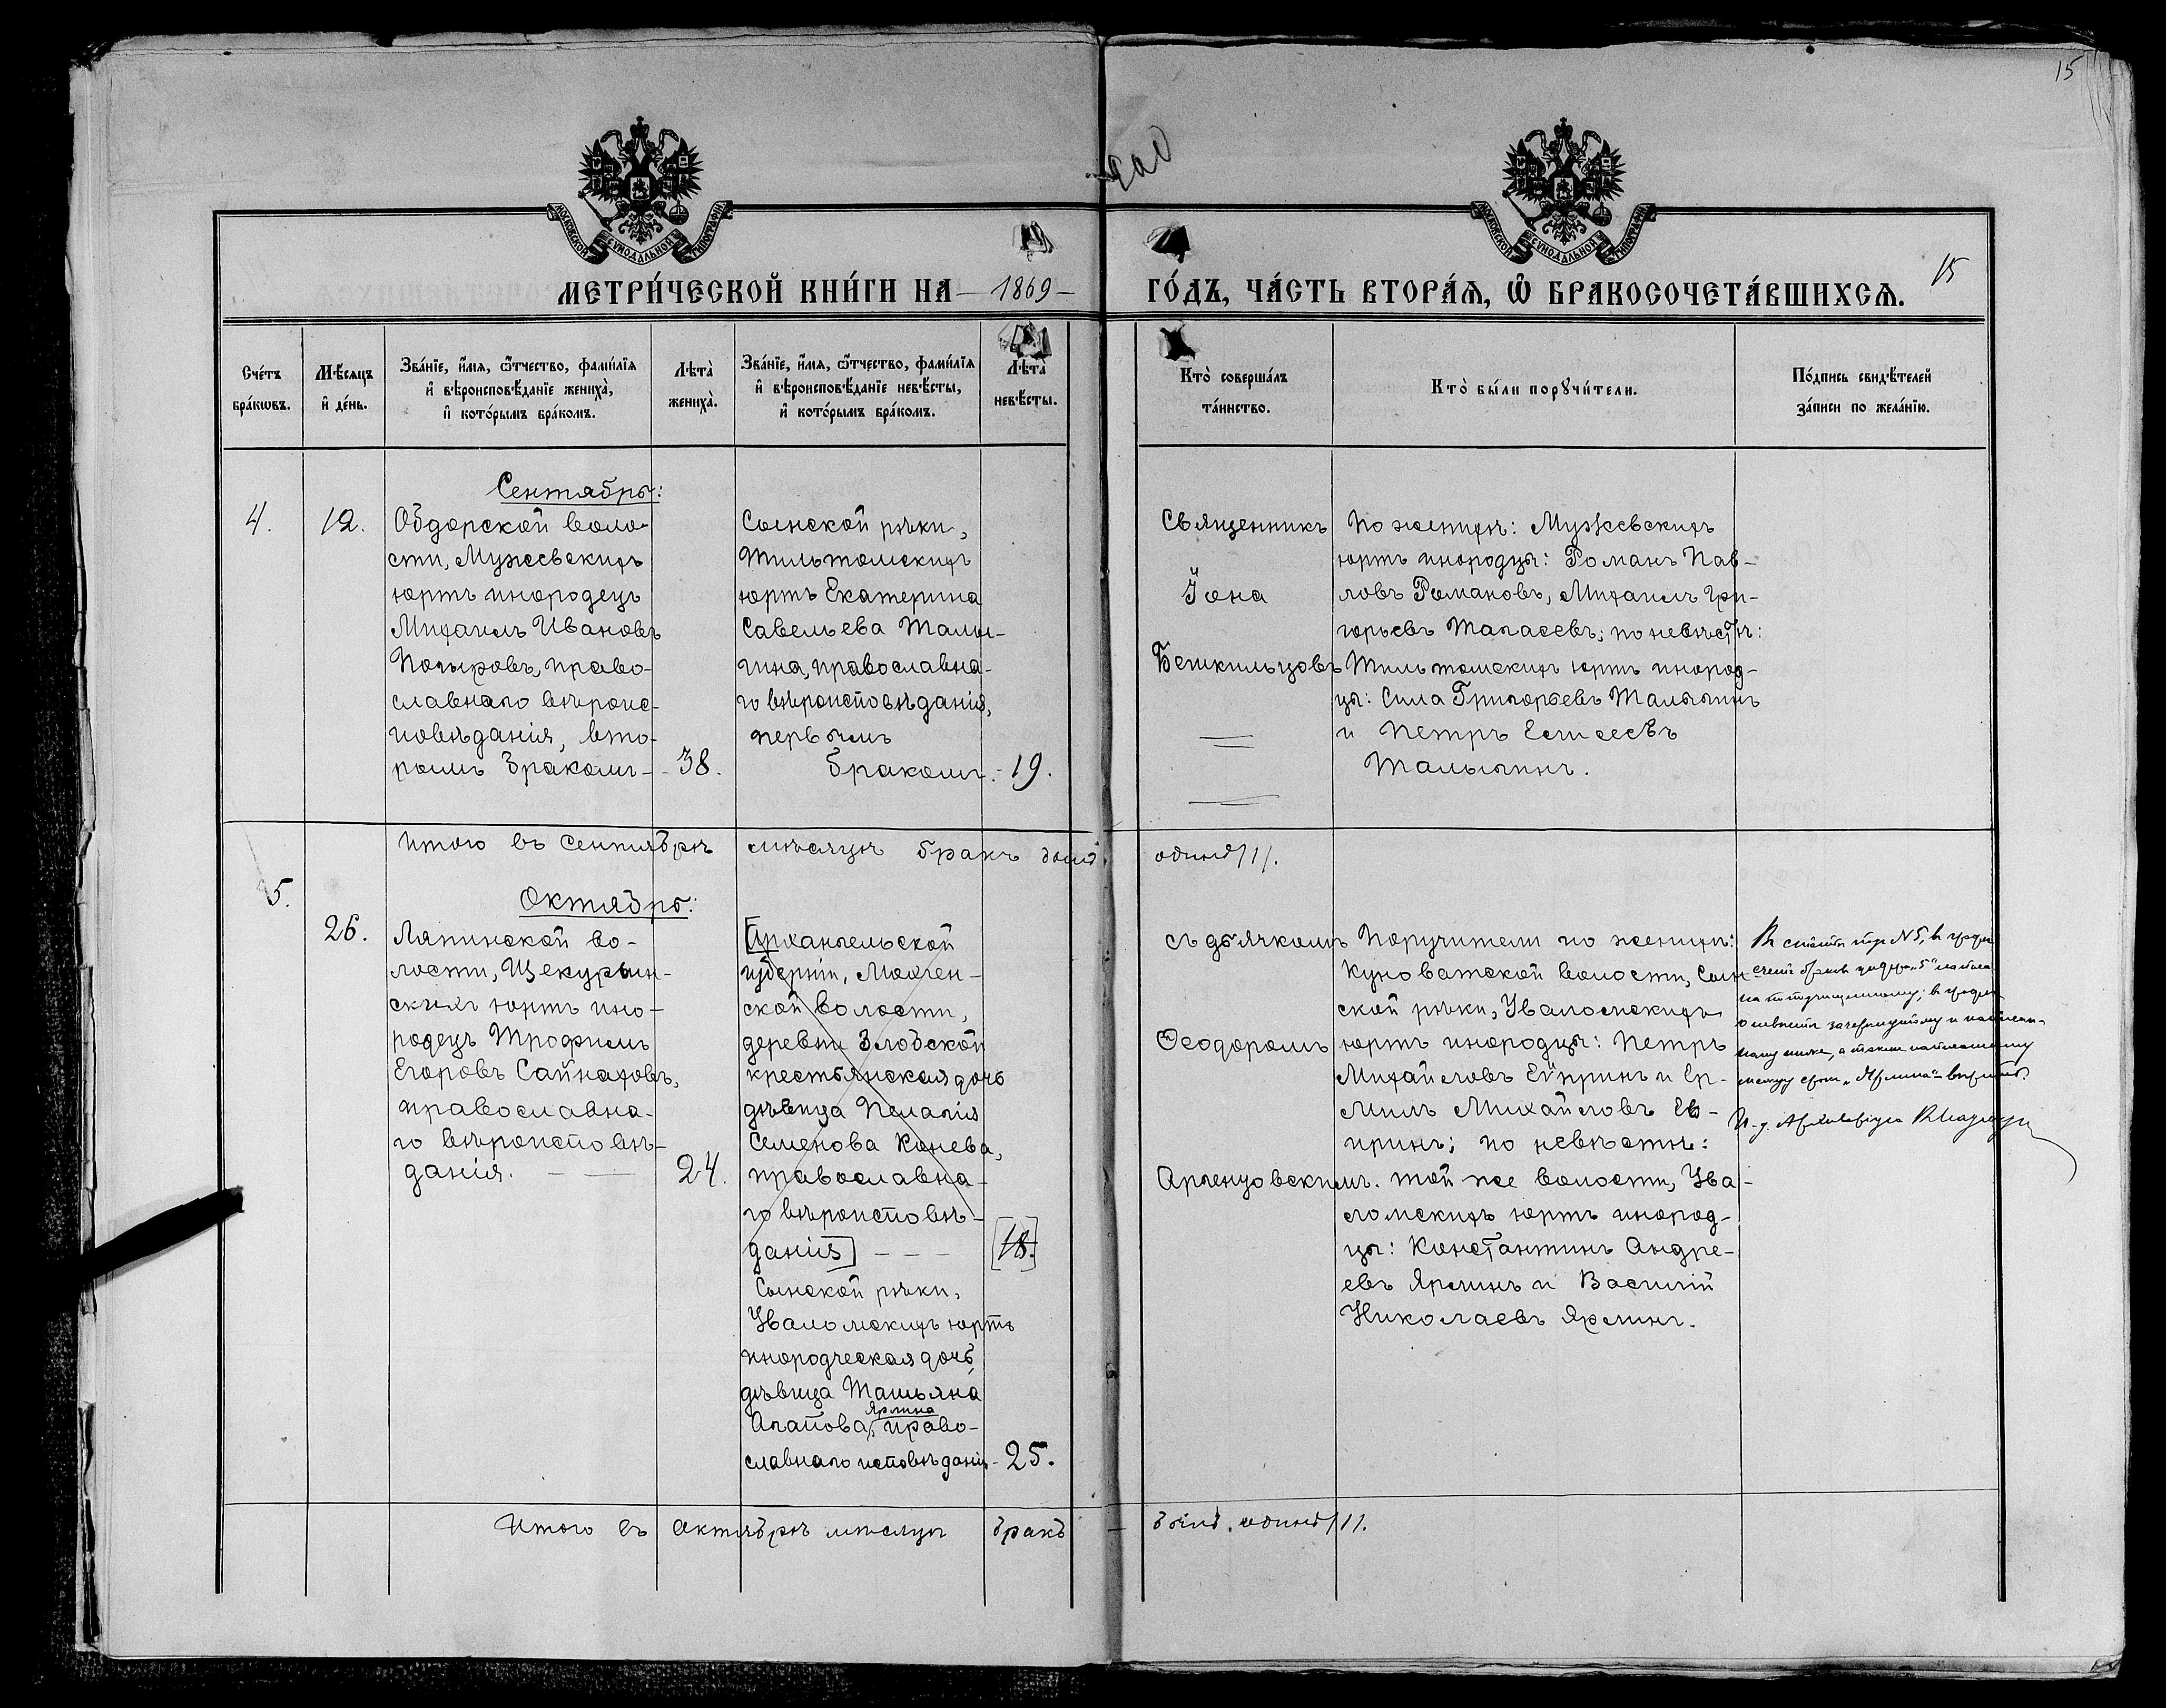 15
МОСКОВСКОЙ СѴНОДАЛЬНОЙ ТИПОГРАФІИ
МОСКОВСКОЙ СѴНОДАЛЬНОЙ ТИПОГРАФІИ
15
МЕТРИ́ЧЕСКОЙ КНИ́ГИ НА 1869 ГО́ДЪ, ЧА́СТЬ ВТОРА́Ѧ, Ѽ БРАКОСОЧЕТА́ВШИХСѦ.
Сче́тъ
бра́кѡвъ.
Мѣ́сяцъ
и҆ де́нь.
Зва́нїе, и҆́мѧ, ѻ҆́тчество, фами́лїѧ
и҆ вѣроисповѣ́данїе жениха̀,
и҆ кото́рымъ бра́комъ.
Лѣта̀
жениха̀.
Зва́нїе, и҆́мѧ, ѻ҆́тчество, фами́лїѧ
и҆ вѣроисповѣ́данїе невѣ́сты,
и҆ кото́рымъ бра́комъ.
Лѣта̀
невѣ́сты.
Кто̀ соверша́лъ
та́инство.
Кто̀ бы́ли порꙋчи́тели.
По́дпись свидѣ́телей
за́писи по жела́нїю.
Сентябрь:
4.
12.
Обдорской воло-
сти, Мужевскихъ
юртъ инородецъ
Михаилъ Ивановъ
Попыровъ, право-
славнаго вѣроис-
повѣданія, вто-
рымъ бракомъ-
38.
Сынской рѣки,
Тильтомскихъ
юртъ Екатерина
Савельева Талы-
гина, православна-
го вѣроисповѣданія,
первымъ
бракомъ.
19.
Священникъ
Іона
Бешкильцовъ
По женихѣ: Мужевскихъ
юртъ инородцы: Романъ Пав-
ловъ Романовъ, Михаилъ Гри-
горьевъ Тапасевъ; по невѣстѣ:
Тильтомскихъ юртъ инород-
цы: Сила Григорьевъ Талыгинъ
и Петръ Елисеевъ
Талыгинъ.
Итого въ Сентябрѣ мѣсяцѣ бракъ былъ одинъ /1/.
5.
Октябрь:
26.
Ляпинской во-
лости, Щекурьин-
скихъ юртъ ино-
родецъ Трофимъ
Егоровъ Сайнаховъ,
православна-
го вѣроисповѣ-
данія.
24.
[Архангельской
губерніи, Мохчен-
ской волости,
деревни Злобской
крестьянская дочь
дѣвица Пелагія
Семенова Канева,
православна-
го вѣроисповѣ-
данія]
[18.]
Сынской рѣки,
Уваломскихъ юртъ
инородческая дочь,
дѣвица Татьяна
Ярлина
Агапова, право-
славнаго исповѣданія-
25.
съ дьячкомъ
Ѳеодоромъ
Арленцовскимъ.
Поручители по женихѣ:
Куноватской волости, Сын-
ской рѣки, Уваломскихъ
юртъ инородцы: Петръ
Михайловъ Ейпринъ и Ер-
милъ Михайловъ Ей-
принъ; по невѣстѣ:
той же волости, Ува-
ломскихъ юртъ инород-
цы: Константинъ Андре-
евъ Ярлинъ и Василій
Николаевъ Ярлинъ.
Въ статьѣ № 5, въ графѣ
счетъ браковъ цифра „5" написана
по подчищенному; въ графѣ
о невѣстѣ зачеркнутому и написан-
ному ниже, а также написанному
между строк „Ярлина" – вѣрить.
Итого въ Октябрѣ мѣсяцѣ бракъ былъ одинъ /1/.